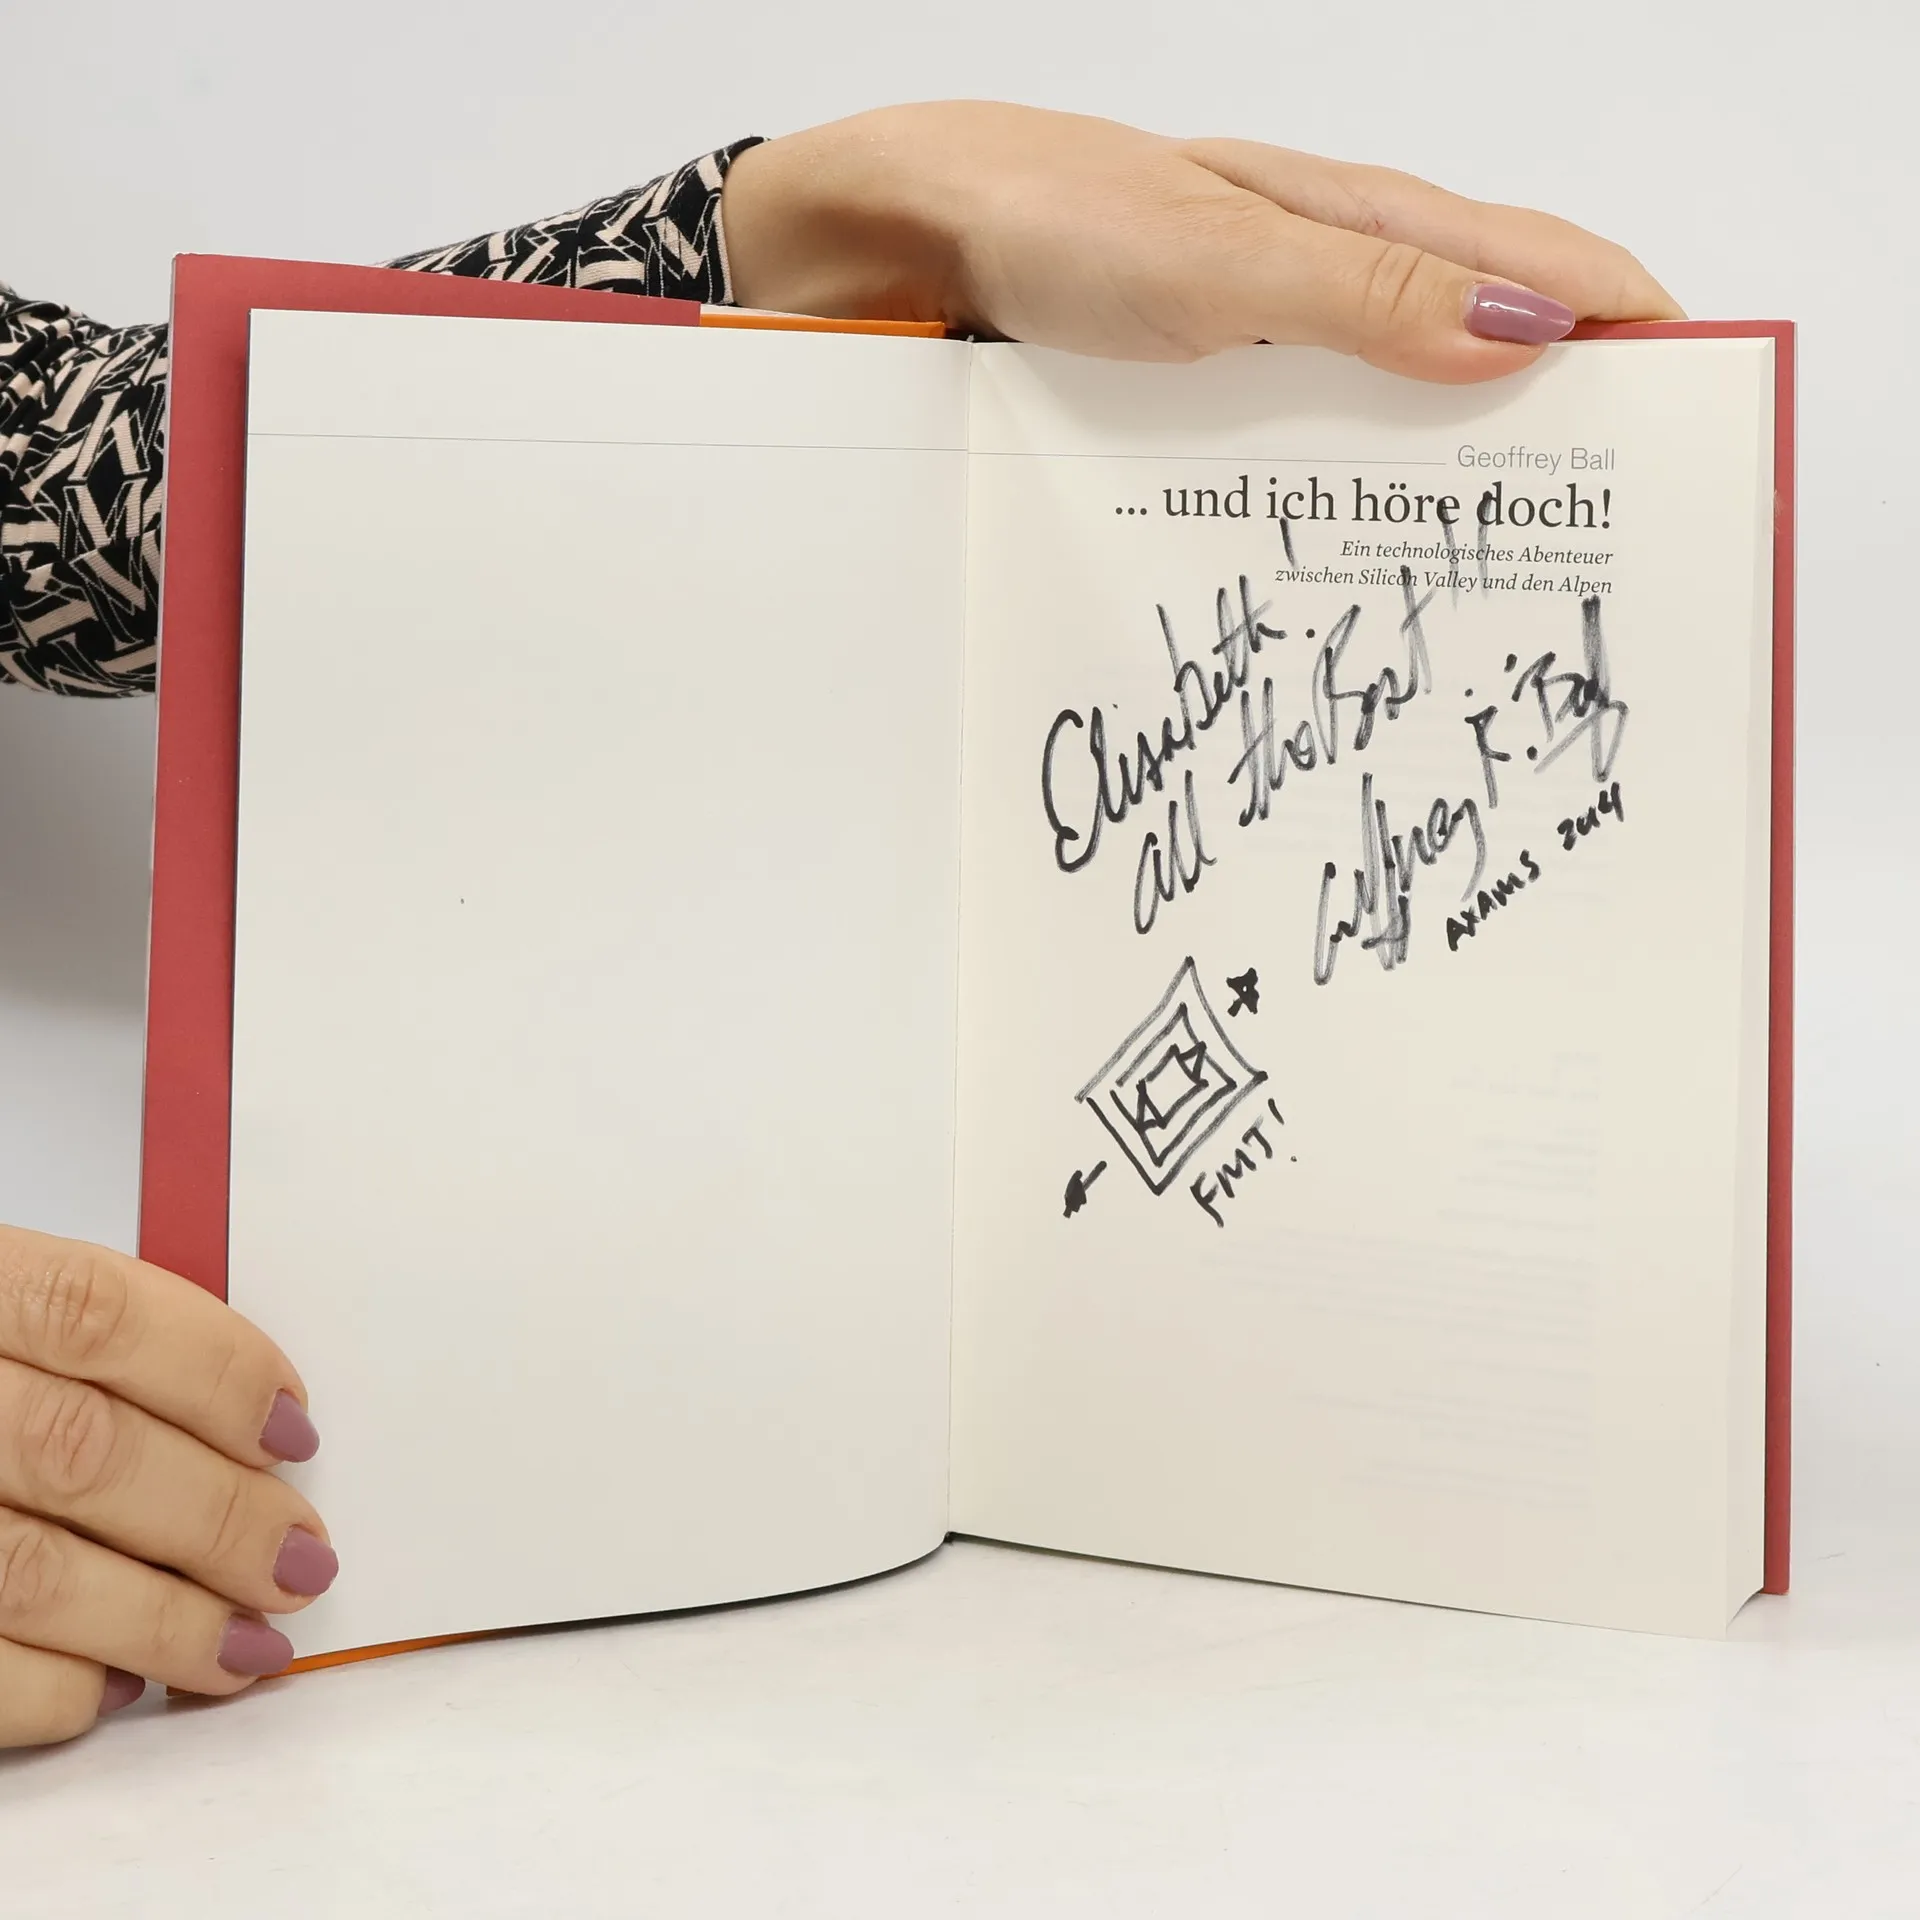 Geoffrey Ball
... und ich höre doch!
Ein technologisches Abenteuer
zwischen Silicon Valley und den Alpen
Elisabeth!
all the Best!!
Geoffrey R. Ball
AXAMS 2014
FMT!